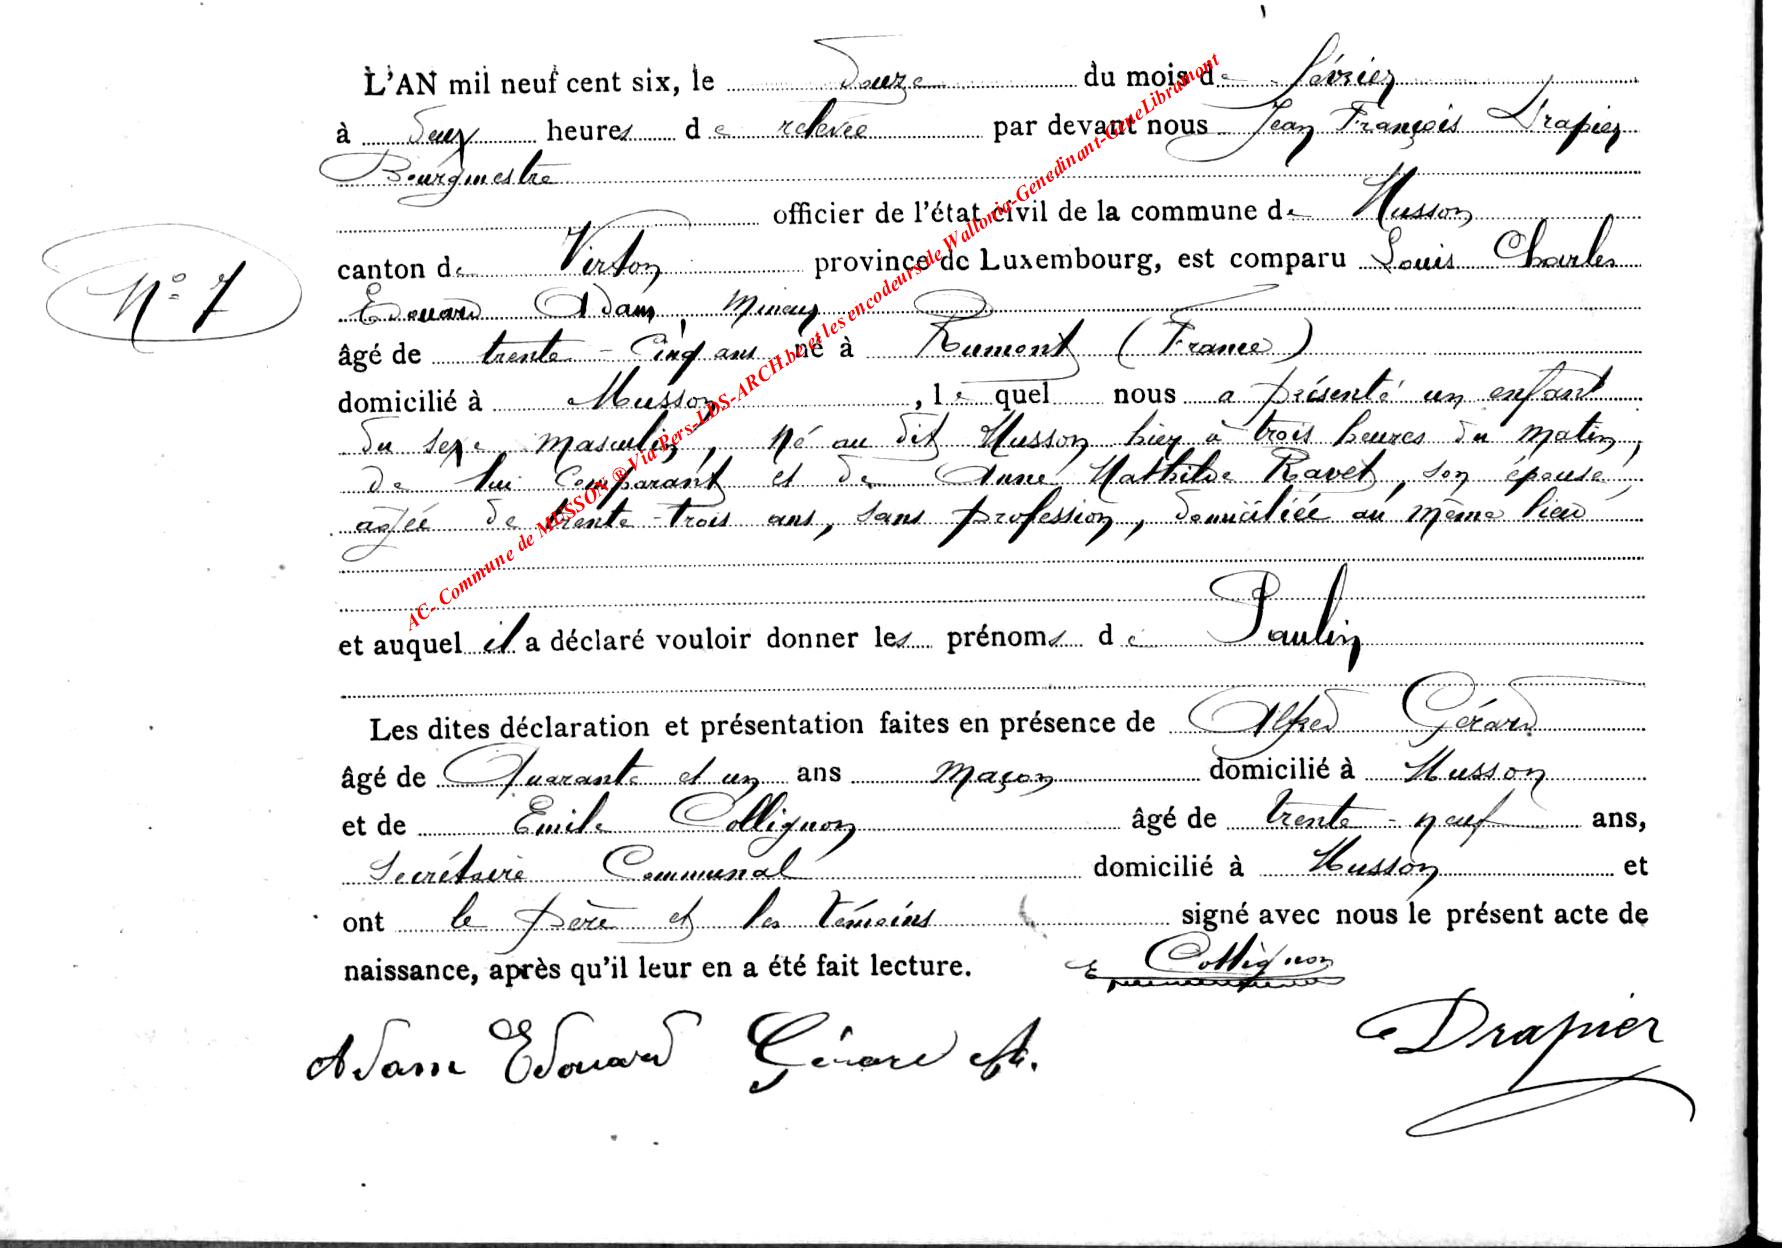 L'AN mil neuf cent six, le douze du mois de février
à deux heures de relevée par devant nous Jean François Drapier
Bourgmestre
officier de l'état civil de la commune de Musson
N° 7
canton de Virton province de Luxembourg, est comparu Louis Charles
Edouard Adam, mineur
âgé de trente-cinq ans né à Rumont (France)
domicilié à Musson, lequel nous a présenté un enfant
du sexe masculin, né au dit Musson hier à trois heures du matin,
de lui comparant et de Anne Mathilde Ravet, son épouse,
agée de trente-trois ans, sans profession, domiciliée au même lieu
et auquel il a déclaré vouloir donner les prénoms de Paulin
Les dites déclaration et présentation faites en présence de Alfred Gérard
âgé de Quarante et un ans maçon domicilié à Musson
et de Emile Collignon âgé de trente-neuf ans,
Secrétaire Communal domicilié à Musson et
ont le père et les témoins signé avec nous le présent acte de
naissance, après qu'il leur en a été fait lecture. E Collignon
Adam Edouard Gérard Alf. Drapier
AC- Commune de MUSSON ® Via Pers-LDS-ARCH.be et les encodeurs de Wallonia-Genedinant-GeneLibramont